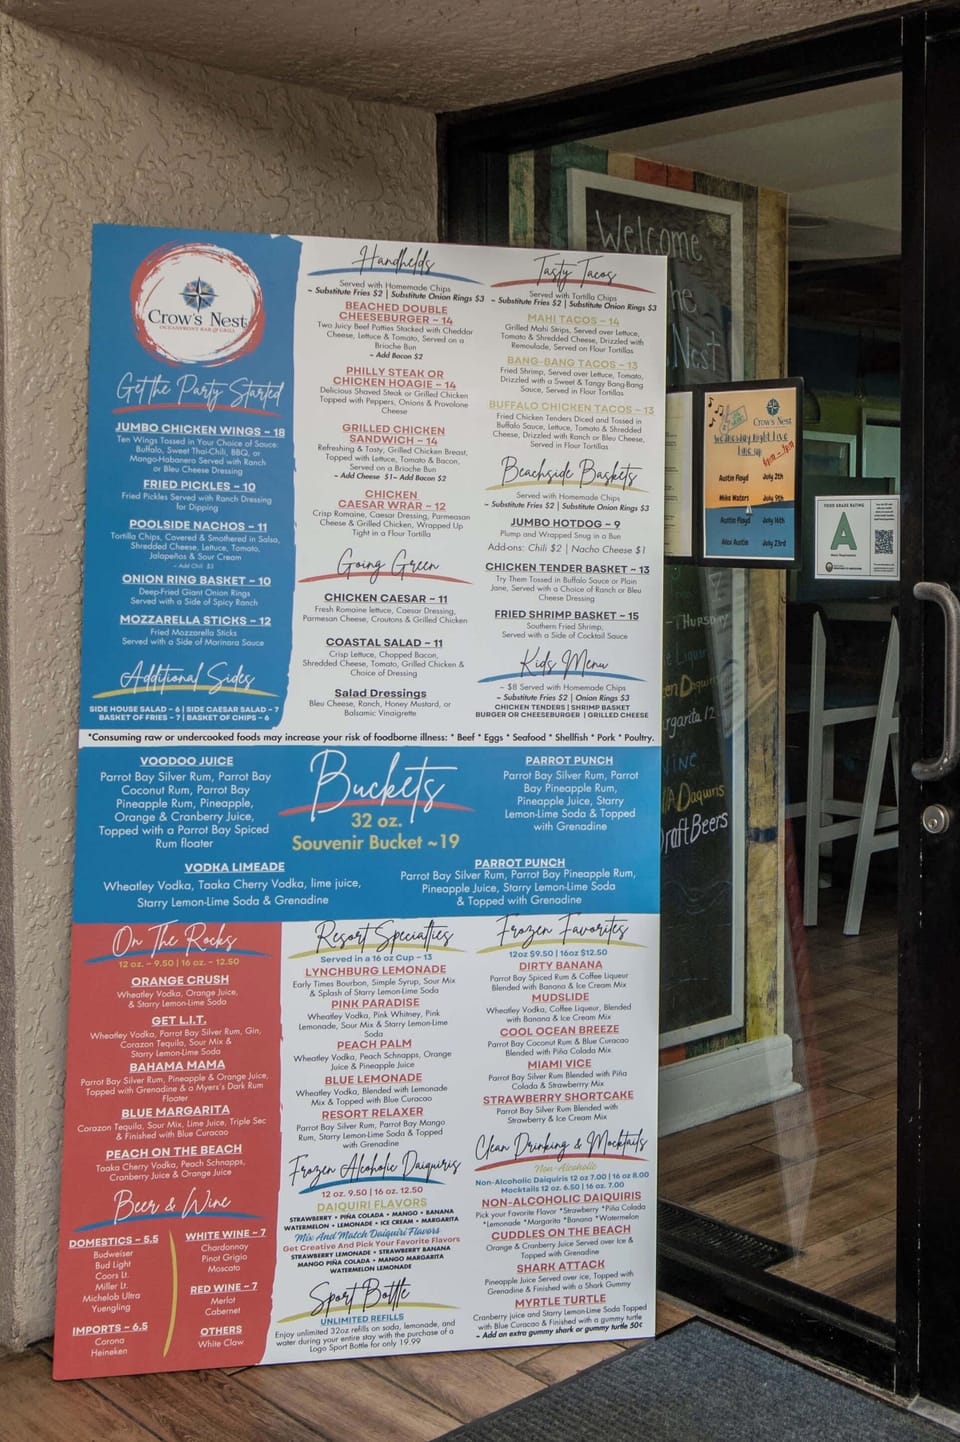 Crow's Nest
OCEANFRONT BAR & GRILL
Get the Party Started
JUMBO CHICKEN WINGS ~ 18
Ten Wings Tossed in Your Choice of Sauce:
Buffalo, Sweet Thai-Chili, BBQ, or
Mango-Habanero Served with Ranch
or Bleu Cheese Dressing
FRIED PICKLES ~ 10
Fried Pickles Served with Ranch Dressing
for Dipping
POOLSIDE NACHOS ~ 11
Tortilla Chips, Covered & Smothered in Salsa,
Shredded Cheese, Lettuce, Tomato,
Jalapeños & Sour Cream
~ Add Chili $3
ONION RING BASKET ~ 10
Deep-Fried Giant Onion Rings
Served with a Side of Spicy Ranch
MOZZARELLA STICKS ~ 12
Fried Mozzarella Sticks
Served with a Side of Marinara Sauce
Additional Sides
SIDE HOUSE SALAD ~ 6 | SIDE CAESAR SALAD ~ 7
BASKET OF FRIES ~ 7 | BASKET OF CHIPS ~ 6
Handhelds
Served with Homemade Chips
~ Substitute Fries $2 | Substitute Onion Rings $3
BEACHED DOUBLE
CHEESEBURGER ~ 14
Two Juicy Beef Patties Stacked with Cheddar
Cheese, Lettuce & Tomato, Served on a
Brioche Bun
~ Add Bacon $2
PHILLY STEAK OR
CHICKEN HOAGIE ~ 14
Delicious Shaved Steak or Grilled Chicken
Topped with Peppers, Onions & Provolone
Cheese
GRILLED CHICKEN
SANDWICH ~ 14
Refreshing & Tasty, Grilled Chicken Breast,
Topped with Lettuce, Tomato & Bacon,
Served on a Brioche Bun
~ Add Cheese $1~ Add Bacon $2
CHICKEN
CAESAR WRAR ~ 12
Crisp Romaine, Caesar Dressing, Parmeasan
Cheese & Grilled Chicken, Wrapped Up
Tight in a Flour Tortilla
Going Green
CHICKEN CAESAR ~ 11
Fresh Romaine lettuce, Caesar Dressing,
Parmesan Cheese, Croutons & Grilled Chicken
COASTAL SALAD ~ 11
Crisp Lettuce, Chopped Bacon,
Shredded Cheese, Tomato, Grilled Chicken &
Choice of Dressing
Salad Dressings
Bleu Cheese, Ranch, Honey Mustard, or
Balsamic Vinaigrette
Tasty Tacos
Served with Tortilla Chips
~ Substitute Fries $2 | Substitute Onion Rings $3
MAHI TACOS ~ 14
Grilled Mahi Strips, Served over Lettuce,
Tomato & Shredded Cheese, Drizzled with
Remoulade, Served on Flour Tortillas
BANG-BANG TACOS ~ 13
Fried Shrimp, Served over Lettuce, Tomato,
Drizzled with a Sweet & Tangy Bang-Bang
Sauce, Served in Flour Tortillas
BUFFALO CHICKEN TACOS ~ 13
Fried Chicken Tenders Diced and Tossed in
Buffalo Sauce, Lettuce, Tomato & Shredded
Cheese, Drizzled with Ranch or Bleu Cheese,
Served in Flour Tortillas
Beachside Baskets
Served with Homemade Chips
~ Substitute Fries $2 | Substitute Onion Rings $3
JUMBO HOTDOG ~ 9
Plump and Wrapped Snug in a Bun
Add-ons: Chili $2 | Nacho Cheese $1
CHICKEN TENDER BASKET ~ 13
Try Them Tossed in Buffalo Sauce or Plain
Jane, Served with a Choice of Ranch or Bleu
Cheese Dressing
FRIED SHRIMP BASKET ~ 15
Southern Fried Shrimp,
Served with a Side of Cocktail Sauce
Kids Menu
~ $8 Served with Homemade Chips
~ Substitute Fries $2 | Onion Rings $3
CHICKEN TENDERS | SHRIMP BASKET
BURGER OR CHEESEBURGER | GRILLED CHEESE
*Consuming raw or undercooked foods may increase your risk of foodborne illness: * Beef * Eggs * Seafood * Shellfish * Pork * Poultry.
VOODOO JUICE
Parrot Bay Silver Rum, Parrot Bay
Coconut Rum, Parrot Bay
Pineapple Rum, Pineapple,
Orange & Cranberry Juice,
Topped with a Parrot Bay Spiced
Rum floater
Buckets
32 oz.
Souvenir Bucket ~19
PARROT PUNCH
Parrot Bay Silver Rum, Parrot
Bay Pineapple Rum,
Pineapple Juice, Starry
Lemon-Lime Soda & Topped
with Grenadine
VODKA LIMEADE
Wheatley Vodka, Taaka Cherry Vodka, lime juice,
Starry Lemon-Lime Soda & Grenadine
PARROT PUNCH
Parrot Bay Silver Rum, Parrot Bay Pineapple Rum,
Pineapple Juice, Starry Lemon-Lime Soda
& Topped with Grenadine
On The Rocks
12 oz. ~ 9.50 | 16 oz. ~ 12.50
ORANGE CRUSH
Wheatley Vodka, Orange Juice,
& Starry Lemon-Lime Soda
GET L.I.T.
Wheatley Vodka, Parrot Bay Silver Rum, Gin,
Corazon Tequila, Sour Mix &
Starry Lemon-Lime Soda
BAHAMA MAMA
Parrot Bay Silver Rum, Pineapple & Orange Juice,
Topped with Grenadine & a Myers's Dark Rum
Floater
BLUE MARGARITA
Corazon Tequila, Sour Mix, Lime Juice, Triple Sec
& Finished with Blue Curacao
PEACH ON THE BEACH
Taaka Cherry Vodka, Peach Schnapps,
Cranberry Juice & Orange Juice
Beer & Wine
DOMESTICS ~ 5.5
Budweiser
Bud Light
Coors Lt.
Miller Lt.
Michelob Ultra
Yuengling
IMPORTS ~ 6.5
Corona
Heineken
WHITE WINE ~ 7
Chardonnay
Pinot Grigio
Moscato
RED WINE ~ 7
Merlot
Cabernet
OTHERS
White Claw
Resort Specialties
Served in a 16 oz Cup ~ 13
LYNCHBURG LEMONADE
Early Times Bourbon, Simple Syrup, Sour Mix
& Splash of Starry Lemon-Lime Soda
PINK PARADISE
Wheatley Vodka, Pink Whitney, Pink
Lemonade, Sour Mix & Starry Lemon-Lime
Soda
PEACH PALM
Wheatley Vodka, Peach Schnapps, Orange
Juice & Pineapple Juice
BLUE LEMONADE
Wheatley Vodka, Blended with Lemonade
Mix & Topped with Blue Curacao
RESORT RELAXER
Parrot Bay Silver Rum, Parrot Bay Mango
Rum, Starry Lemon-Lime Soda & Topped
with Grenadine
Frozen Alcoholic Daiquiris
12 oz. 9.50 | 16 oz. 12.50
DAIQUIRI FLAVORS
STRAWBERRY • PIÑA COLADA • MANGO • BANANA
WATERMELON • LEMONADE • ICE CREAM • MARGARITA
Mix And Match Daiquiri Flavors
Get Creative And Pick Your Favorite Flavors
STRAWBERRY LEMONADE • STRAWBERRY BANANA
MANGO PIÑA COLADA • MANGO MARGARITA
WATERMELON LEMONADE
Sport Bottle
UNLIMITED REFILLS
Enjoy unlimited 32oz refills on soda, lemonade, and
water during your entire stay with the purchase of a
Logo Sport Bottle for only 19.99
Frozen Favorites
12oz $9.50 | 16oz $12.50
DIRTY BANANA
Parrot Bay Spiced Rum & Coffee Liqueur
Blended with Banana & Ice Cream Mix
MUDSLIDE
Wheatley Vodka, Coffee Liqueur, Blended
with Banana & Ice Cream Mix
COOL OCEAN BREEZE
Parrot Bay Coconut Rum & Blue Curacao
Blended with Piña Colada Mix
MIAMI VICE
Parrot Bay Silver Rum Blended with Piña
Colada & Strawberry Mix
STRAWBERRY SHORTCAKE
Parrot Bay Silver Rum Blended with
Strawberry & Ice Cream Mix
Clean Drinking & Mocktails
Non-Alcoholic
Non-Alcoholic Daiquiris 12 oz 7.00 | 16 oz 8.00
Mocktails 12 oz. 6.50 | 16 oz. 7.00
NON-ALCOHOLIC DAIQUIRIS
Pick your Favorite Flavor *Strawberry *Piña Colada
*Lemonade *Margarita *Banana *Watermelon
CUDDLES ON THE BEACH
Orange & Cranberry Juice Served over Ice &
Topped with Grenadine
SHARK ATTACK
Pineapple Juice Served over ice, Topped with
Grenadine & Finished with a Shark Gummy
MYRTLE TURTLE
Cranberry juice and Starry Lemon-Lime Soda Topped
with Blue Curacao & Finished with a gummy turtle
~ Add an extra gummy shark or gummy turtle 50¢
Welcome
he
Nest
Thursday
Daquiri
garita 12
Wine
Daquiris
Draft Beers
Crow's Nest
Wednesday night Live
line up
Austin Floyd July 2th
Mike Waters July 9th
Austin Floyd July 16th
Alex Austin July 23rd
FOOD GRADE RATING
A